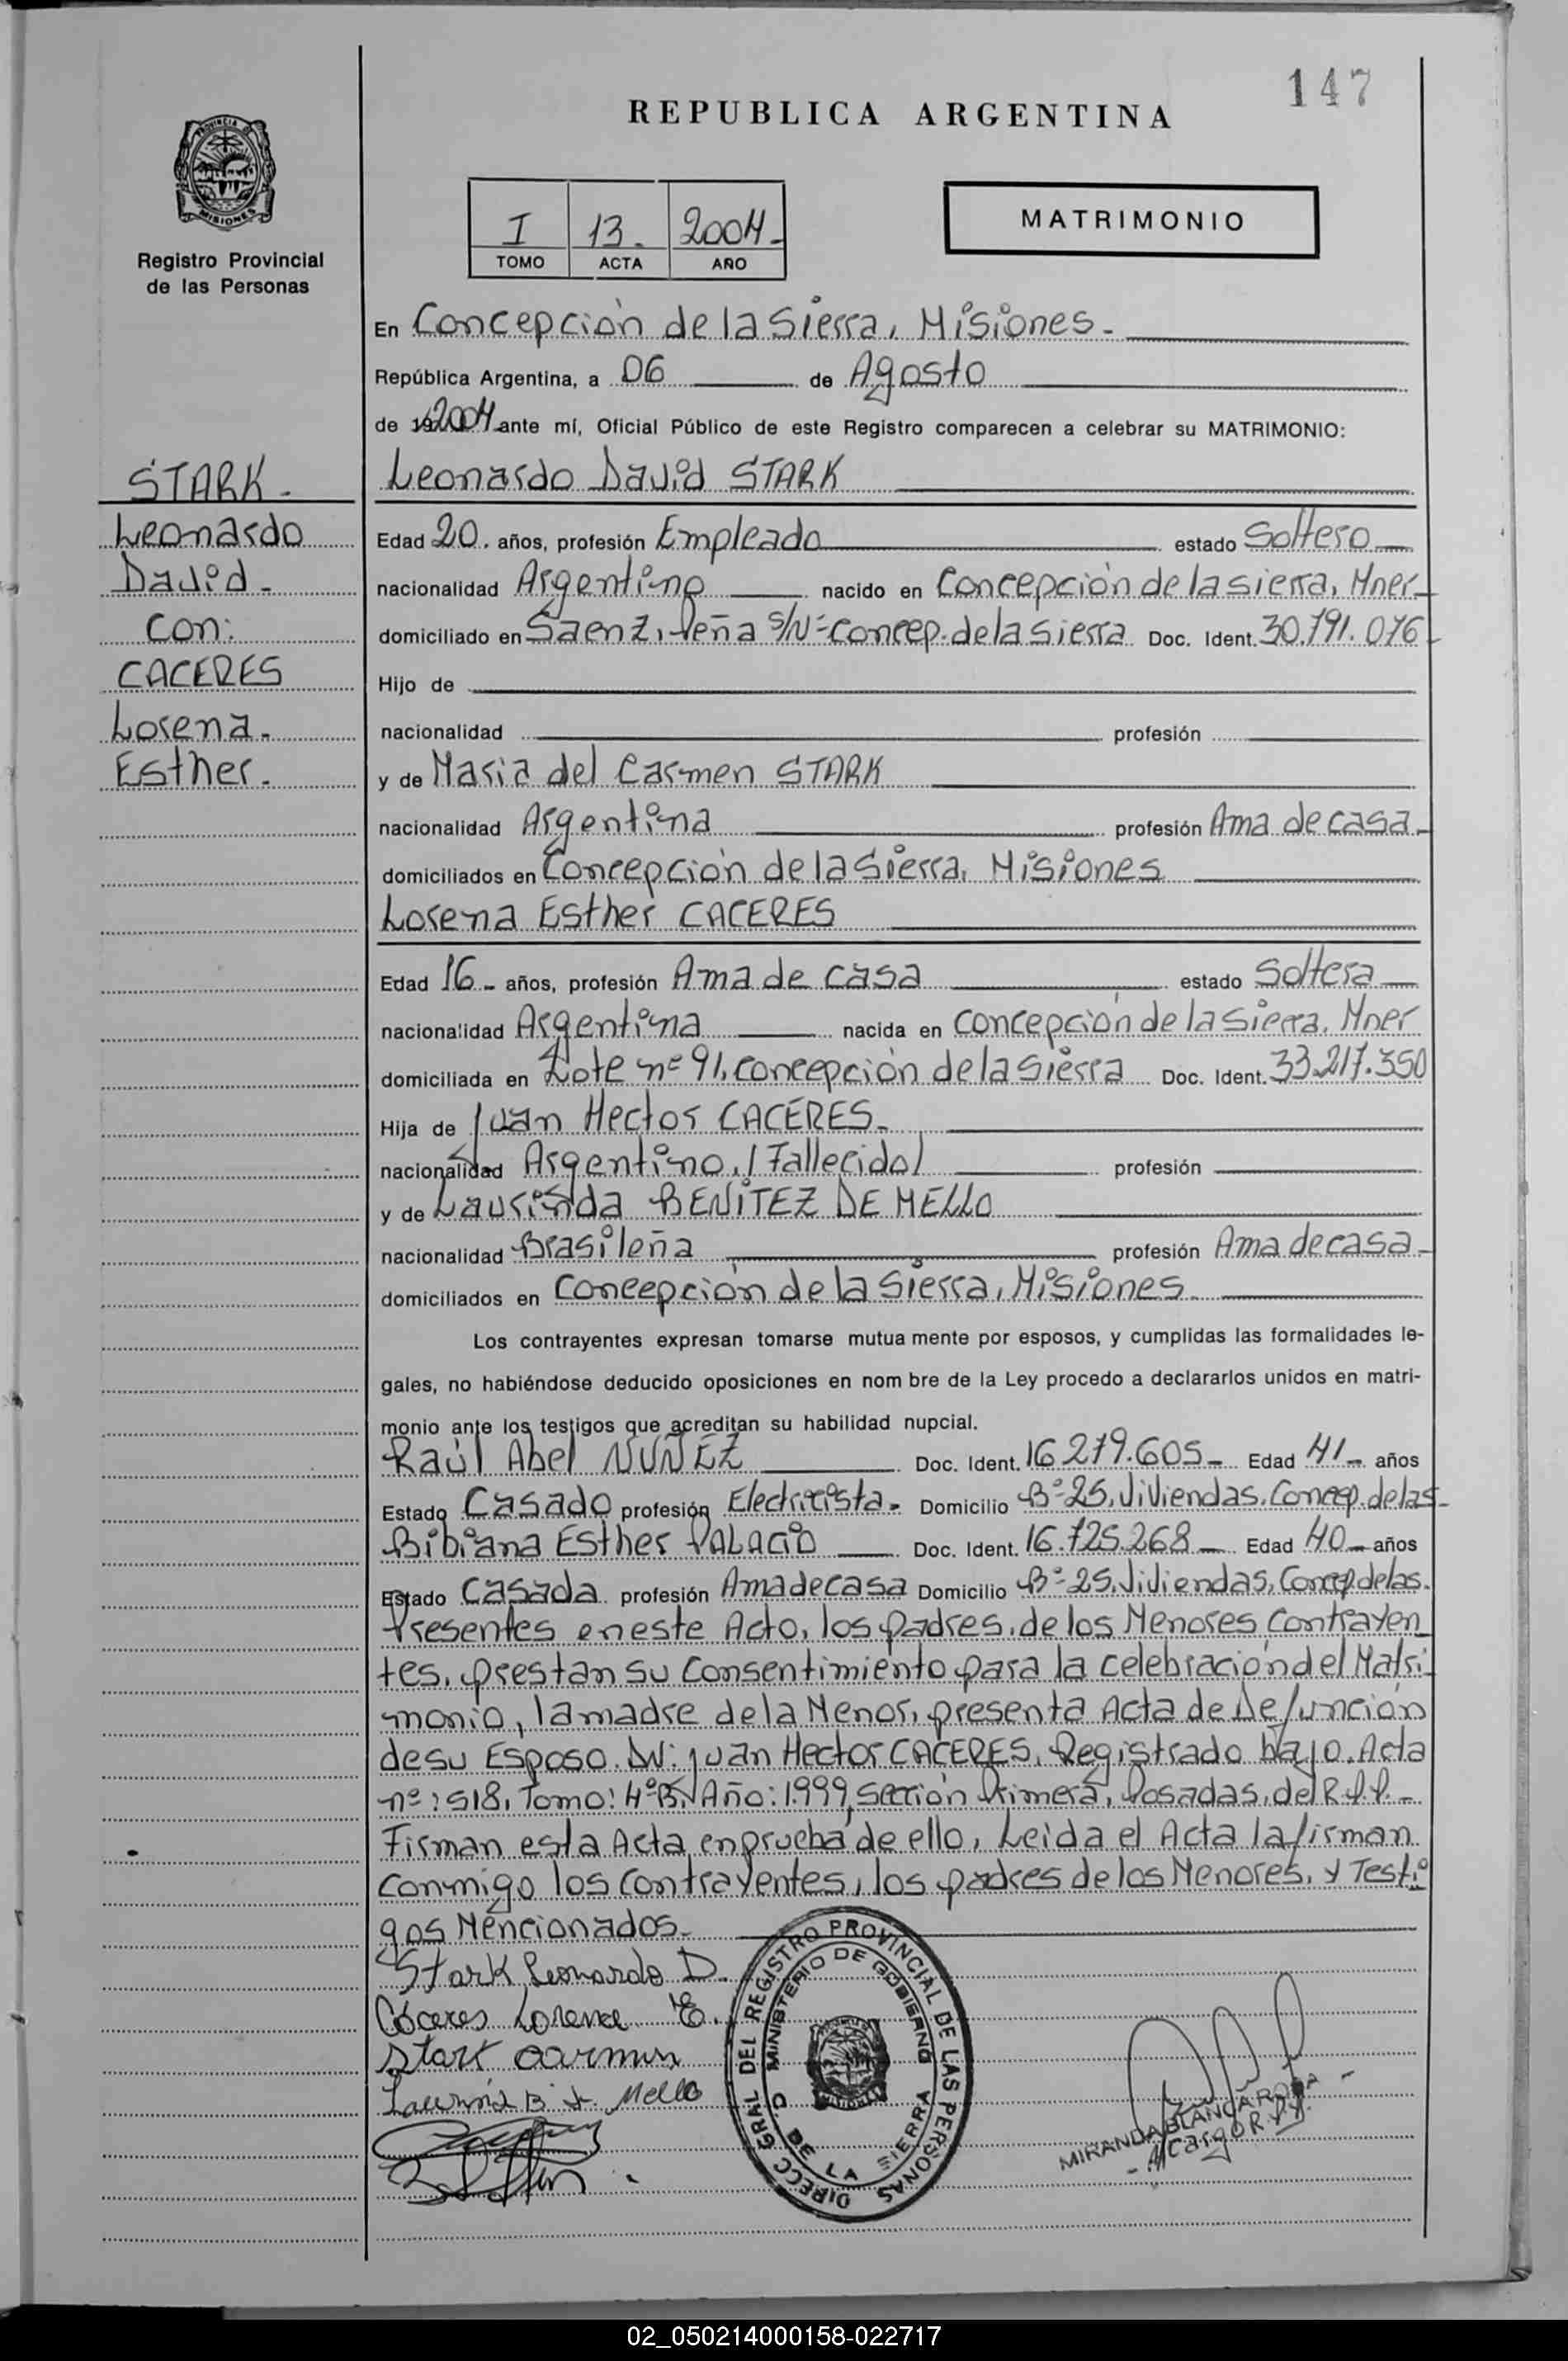 147
REPUBLICA ARGENTINA
PROVINCIA DE
MISIONES
Registro Provincial
de las Personas
I 13. 2004.
TOMO ACTA AÑO
MATRIMONIO
En Concepción de la Sierra, Misiones.
República Argentina, a 06 de Agosto
de 192004 ante mí, Oficial Público de este Registro comparecen a celebrar su MATRIMONIO:
STARK.
Leonardo
David.
Con:
CACERES
Lorena.
Esther.
Leonardo David STARK
Edad 20. años, profesión Empleado estado Soltero
nacionalidad Argentino nacido en Concepción de la Sierra, Mnes
domiciliado en Saenz, Peña S/Nº Concep. de la Sierra Doc. Ident. 30.791.076
Hijo de
nacionalidad profesión
y de Maria del Carmen STARK
nacionalidad Argentina profesión Ama de casa.
domiciliados en Concepción de la Sierra, Misiones
Lorena Esther CACERES
Edad 16 años, profesión Ama de casa estado Soltera
nacionalidad Argentina nacida en Concepción de la Sierra, Mnes
domiciliada en Lote nº 91, Concepción de la Sierra Doc. Ident. 33.217.350
Hija de Juan Hector CACERES.
nacionalidad Argentino. (Fallecido) profesión
y de Laurinda BENITEZ DE MELLO
nacionalidad Brasileña profesión Ama de casa
domiciliados en Concepción de la Sierra, Misiones.
Los contrayentes expresan tomarse mutua mente por esposos, y cumplidas las formalidades le-
gales, no habiéndose deducido oposiciones en nom bre de la Ley procedo a declararlos unidos en matri-
monio ante los testigos que acreditan su habilidad nupcial.
Raúl Abel NUÑEZ Doc. Ident. 16.279.605 Edad 41 años
Estado Casado profesión Electricista. Domicilio Bº 25, Viviendas, Concep. de la S
Bibiana Esther PALACIO Doc. Ident. 16.725.268 Edad 40 años
Estado Casada profesión Ama de casa Domicilio Bº 25, Viviendas, Concep de la S.
Presentes en este Acto, los padres, de los Menores Contrayen
tes, prestan su Consentimiento para la celebración del Matri
monio, la madre de la Menor, presenta Acta de Defunción
de su Esposo. Dn: Juan Hector CACERES, Registrado bajo Acta
nº: 518, Tomo: 4ºB, Año: 1.999, sección Primera, Posadas, del R.P.P.
Firman esta Acta, en prueba de ello, Leida el Acta la firman
conmigo los Contrayentes, los padres de los Menores, y Testi
gos Mencionados.
Stark Leonardo D.
Cáceres Lorena E.
Stark Carmen
B. d. Mello
DIRECC GRAL DEL REGISTRO PROVINCIAL DE LAS PERSONAS
MINISTERIO DE GOBIERNO
C. DE LA SIERRA
MIRANDA BLANCA ROSA
A/Cargo R.P.P.
02_050214000158-022717